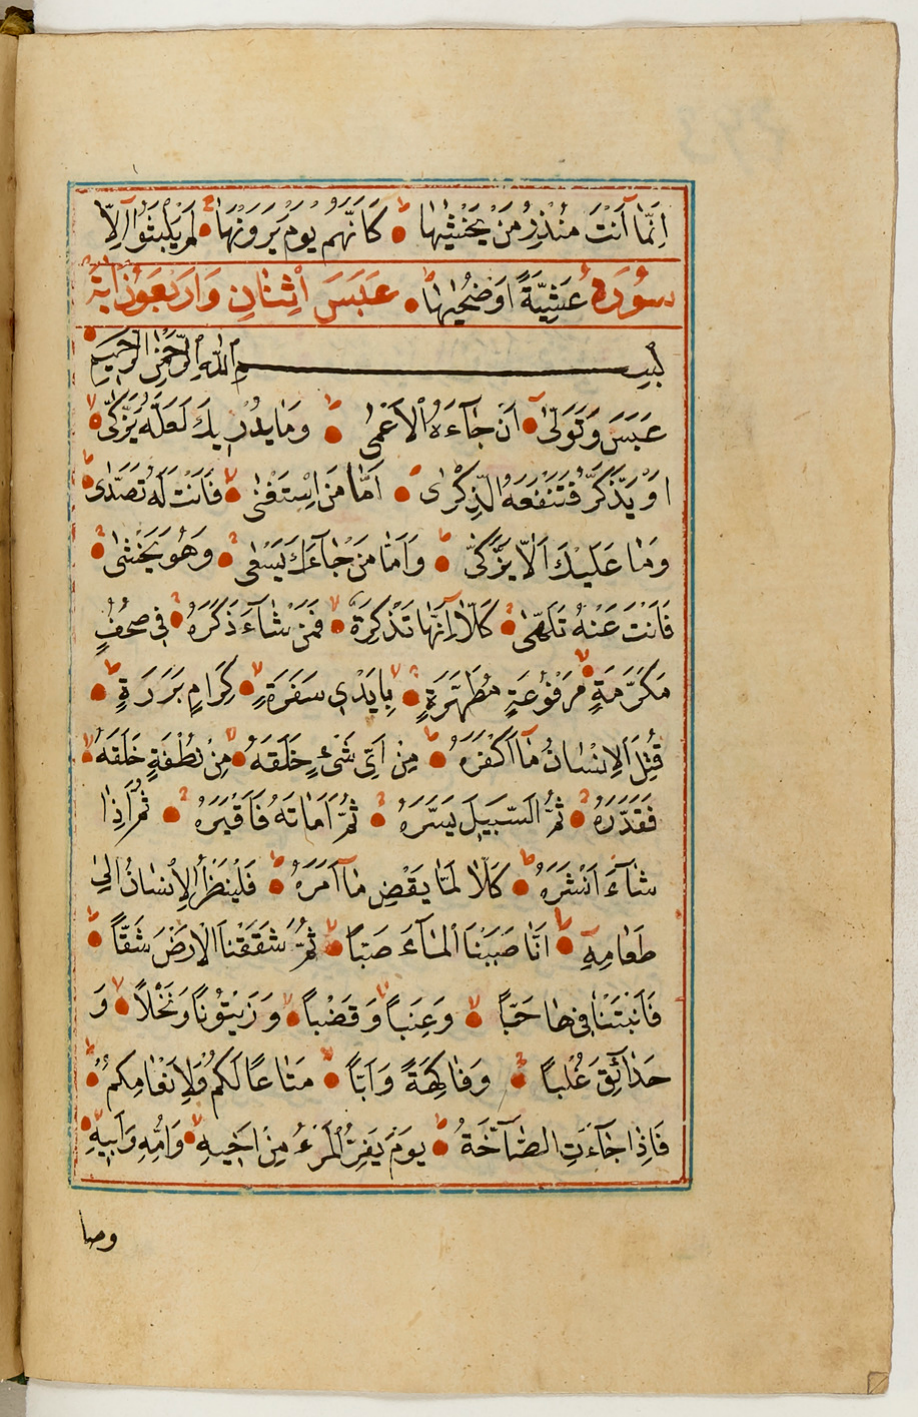 اِنَّمَٓا اَنْتَ مُنْذِرُ مَنْ يَخْشٰيهَا كَاَنَّهُمْ يَوْمَ يَرَوْنَهَا لَمْ يَلْبَثُٓوا اِلَّا
سُورَةُ عَشِيَّةً اَوْ ضُحٰيهَا عَبَسَ اِثْنَانِ وَاَرْبَعُونَ اٰيَةً
بِسْمِ اللّٰهِ الرَّحْمٰنِ الرَّحِيمِ
عَبَسَ وَتَوَلّٰىٓ اَنْ جَٓاءَهُ الْاَعْمٰى وَمَا يُدْرِيكَ لَعَلَّهُ يَزَّكّٰى
اَوْ يَذَّكَّرُ فَتَنْفَعَهُ الذِّكْرٰى اَمَّا مَنِ اسْتَغْنٰى فَاَنْتَ لَهُ تَصَدّٰى
وَمَا عَلَيْكَ اَلَّا يَزَّكّٰى وَاَمَّا مَنْ جَٓاءَكَ يَسْعٰى وَهُوَ يَخْشٰى
فَاَنْتَ عَنْهُ تَلَهّٰى كَلَّٓا اِنَّهَا تَذْكِرَةٌ فَمَنْ شَٓاءَ ذَكَرَهُ فِي صُحُفٍ
مُكَرَّمَةٍ مَرْفُوعَةٍ مُطَهَّرَةٍ بِاَيْدِي سَفَرَةٍ كِرَامٍ بَرَرَةٍ
قُتِلَ الْاِنْسَانُ مَٓا اَكْفَرَهُ مِنْ اَيِّ شَيْءٍ خَلَقَهُ مِنْ نُطْفَةٍ خَلَقَهُ
فَقَدَّرَهُ ثُمَّ السَّبِيلَ يَسَّرَهُ ثُمَّ اَمَاتَهُ فَاَقْبَرَهُ ثُمَّ اِذَا
شَٓاءَ اَنْشَرَهُ كَلَّا لَمَّا يَقْضِ مَٓا اَمَرَهُ فَلْيَنْظُرِ الْاِنْسَانُ اِلٰى
طَعَامِهِٓ اَنَّا صَبَبْنَا الْمَٓاءَ صَبًّا ثُمَّ شَقَقْنَا الْاَرْضَ شَقًّا
فَاَنْبَتْنَا فِيهَا حَبًّا وَعِنَبًا وَقَضْبًا وَزَيْتُونًا وَنَخْلًا وَ
حَدَٓائِقَ غُلْبًا وَفَاكِهَةً وَاَبًّا مَتَاعًا لَكُمْ وَلِاَنْعَامِكُمْ
فَاِذَا جَٓاءَتِ الصَّٓاخَّةُ يَوْمَ يَفِرُّ الْمَرْءُ مِنْ اَخِيهِ وَاُمِّهِ وَاَبِيهِ
وصا